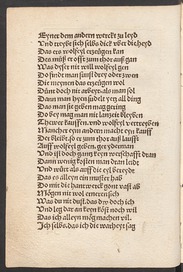 Eyner dem andern zu leyd
Vnd treybt sich selbs dick vber die heyd
Das er wolfeyl erzeügen kan
Des müß er offt zum thor auß gan
Was dyser nit will wolfeyl gen
Do findt man sunst drey oder zwen
Die meynen das erzeügen wol
Dünt doch nit als man sol
Dann man hyen sudelt yetz all ding
Das man sie geben mag gering
Do bey mag man nit lang bleyben
Theuwer kauffen, vnd wolfeyl vertreyben
Mancher eym andern macht eyn kauff
Der bleibt, so er zum thor auß lauff
Auff wolfeyl geben, ger yderman
Vnd ist doch gantz keyn dran
Dann wenig kosten man dran leidt
Vnd würt als auff die eyl bereydt
Das es alleyn ein muster hab
Do mit die hantwerck gont vast ab
Mögen nit wol erneren sich
Was du nit dust, das dü doch ich
Vnd leg dar an keyn kost noch wil
Das ich alleyn mög machen vil
Ich selbs, das ich die warheyt sag